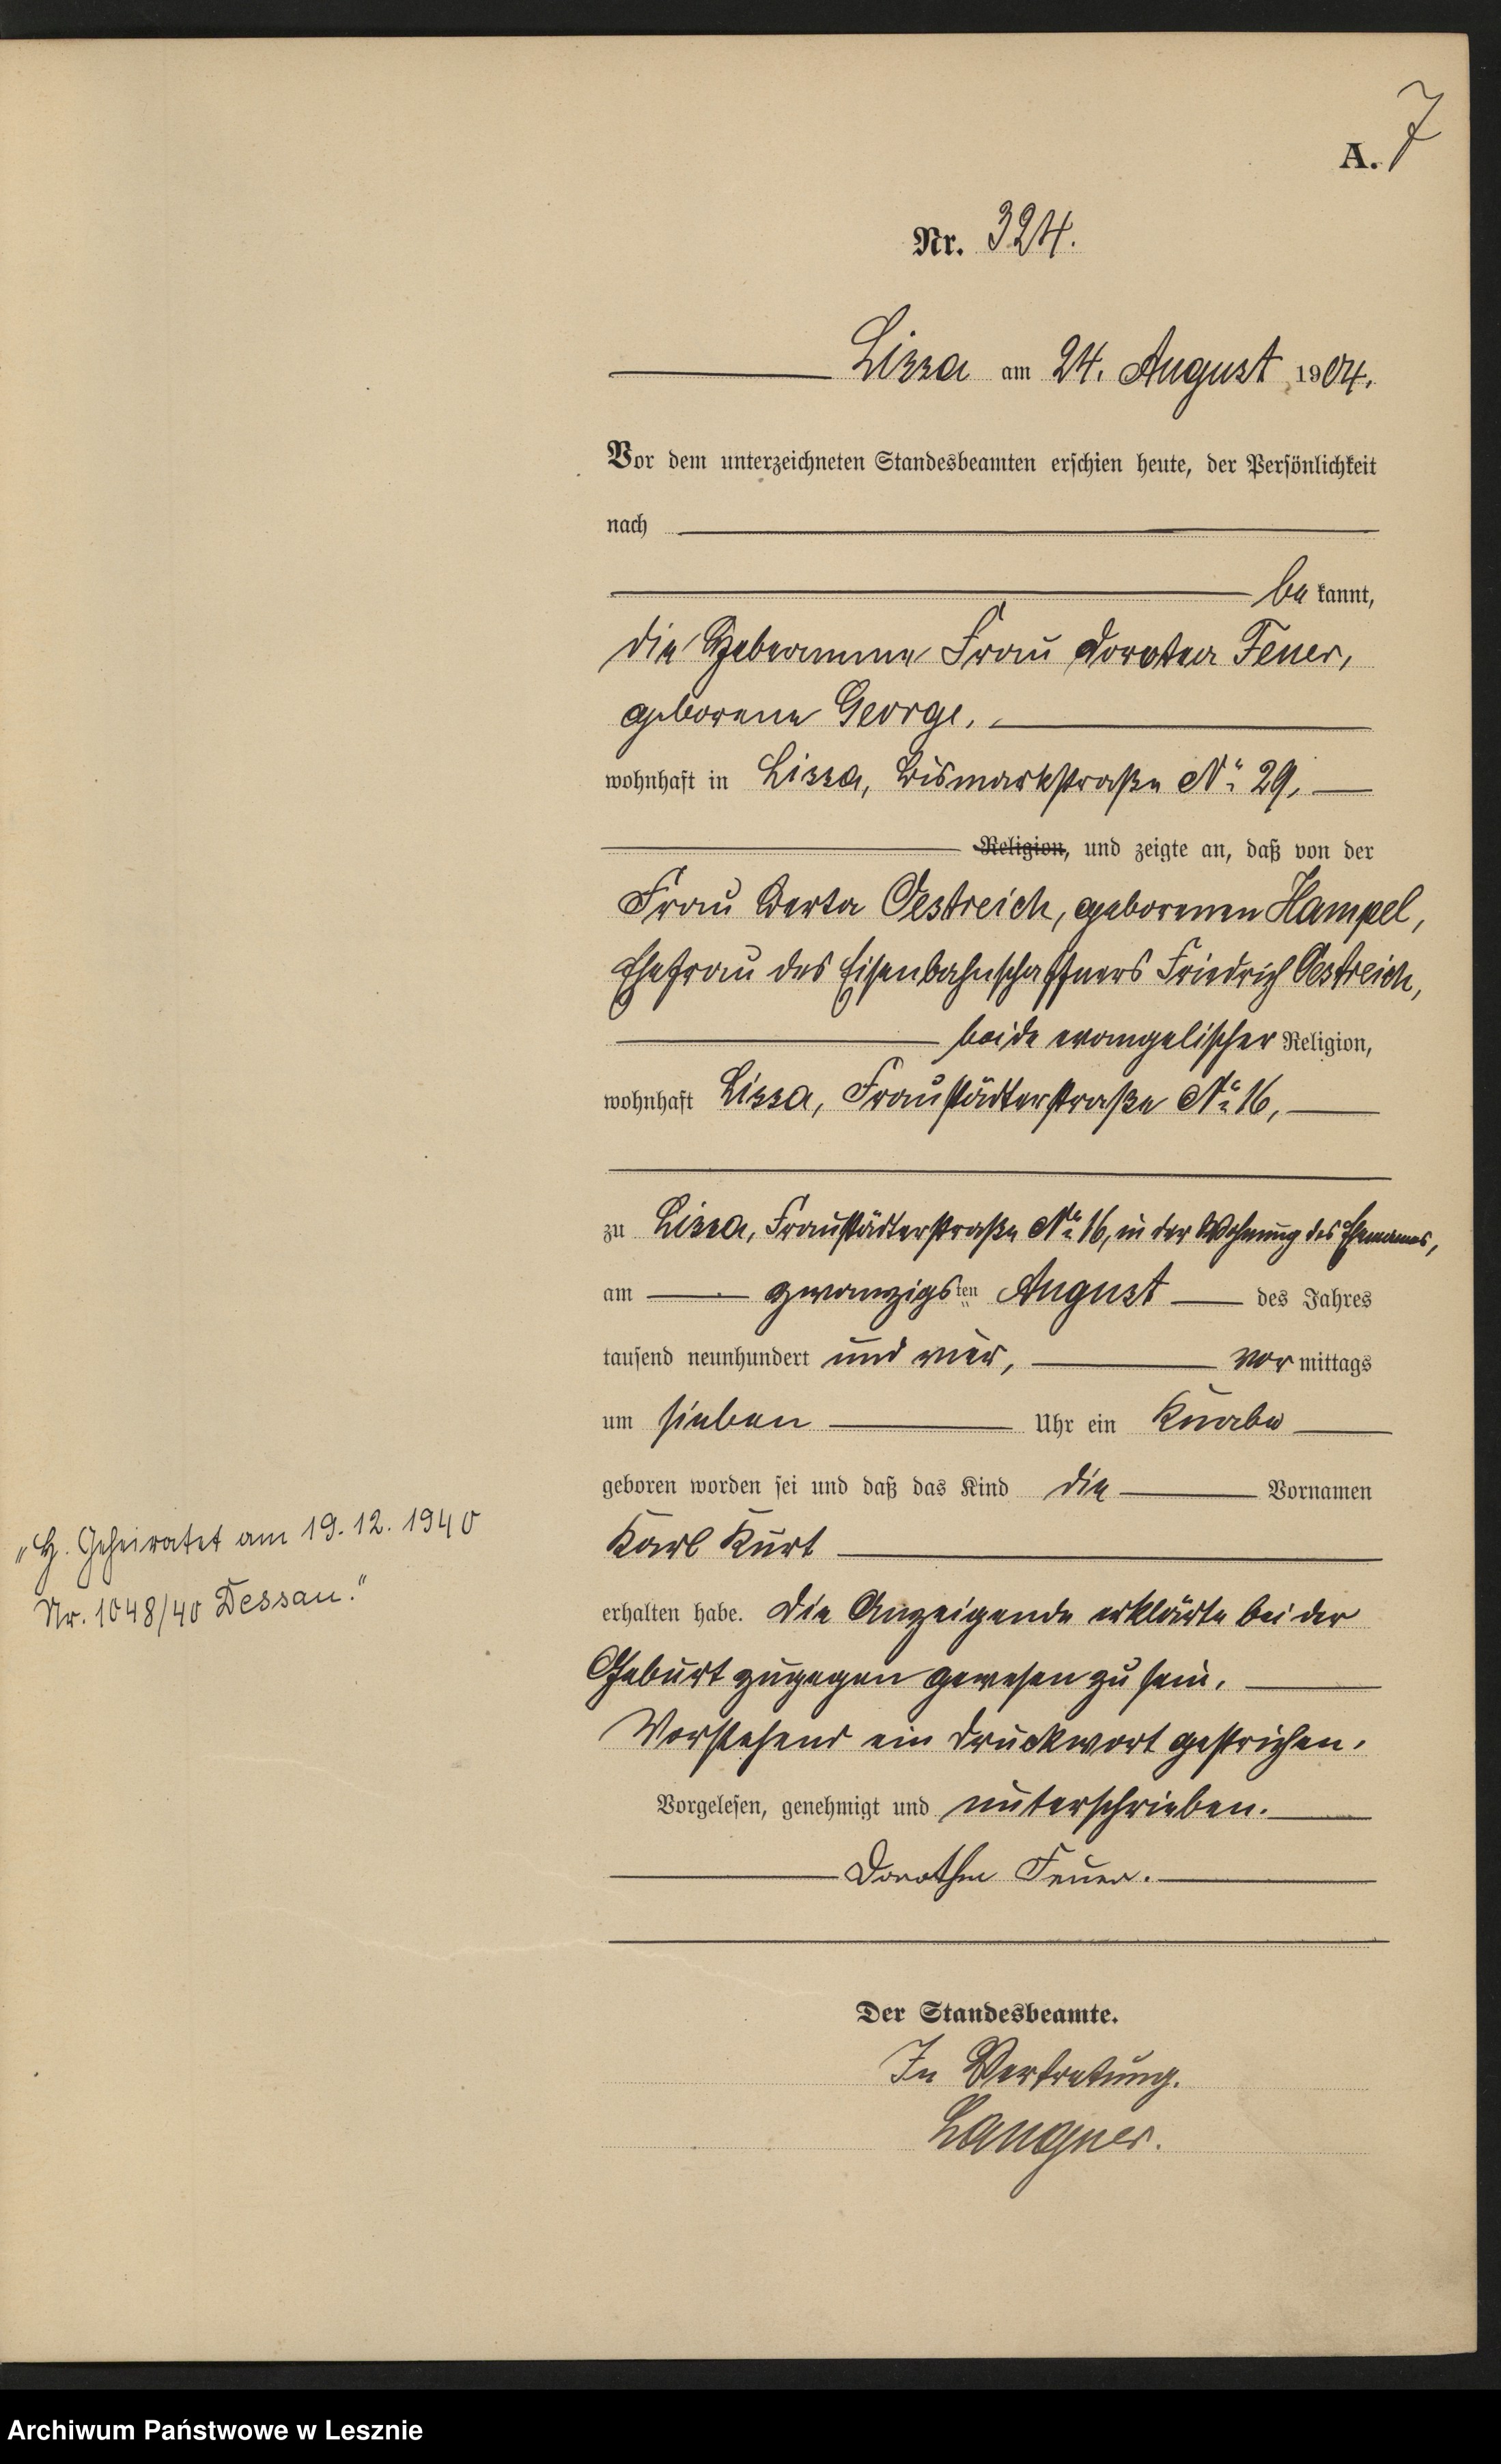 A. 7
Nr. 324.
Lissa am 24. August 1904.
Vor dem unterzeichneten Standesbeamten erschien heute, der Persönlichkeit
nach
be kannt,
die Hebeamme Frau Dorotea Feuer,
geborene George,
wohnhaft in Lissa, Bismarkstraße No 29,
Religion, und zeigte an, daß von der
Frau Berta Oestreich, geborenen Hampel,
Ehefrau des Eisenbahnschaffners Friedrich Oestreich,
beide evangelischer Religion,
wohnhaft Lissa, Fraustädterstraße No 16,
zu Lissa, Fraustädterstraße No 16, in der Wohnung des Ehemannes,
am zwanzigsten August des Jahres
tausend neunhundert und vier, vor mittags
um sieben Uhr ein Knabe
geboren worden sei und daß das Kind die Vornamen
Karl Kurt
„H. Geheiratet am 19.12.1940
Nr. 1048/40 Dessau.“
erhalten habe. Die Anzeigende erklärte bei der
Geburt zugegen gewesen zu sein.
Vorstehend ein Druckwort gestrichen.
Vorgelesen, genehmigt und unterschrieben.
Dorothea Feuer.
Der Standesbeamte.
In Vertretung.
Langner.
Archiwum Państwowe w Lesznie